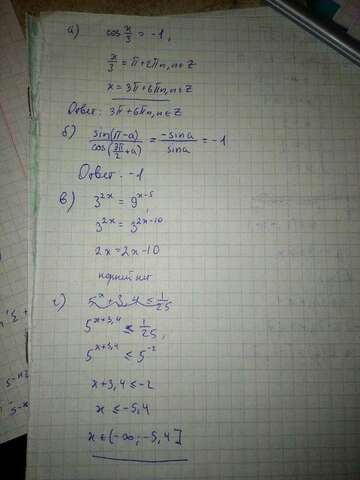 а) cos x/3 = -1,
x/3 = π+2πn, n∈Z
x = 3π+6πn, n∈Z
Ответ: 3π+6πn, n∈Z
б) sin(π-a)/cos(3π/2+a) = -sina/sina = -1
Ответ. -1
в) 3^2x = 9^x-5
3^2x = 3^2x-10
2x = 2x-10
корней нет
г) 5^x+3,4 ≤ 1/25
5^x+3,4 ≤ 1/25,
5^x+3,4 ≤ 5^-2
x+3,4 ≤ -2
x ≤ -5,4
x ∈ (-∞; -5,4]